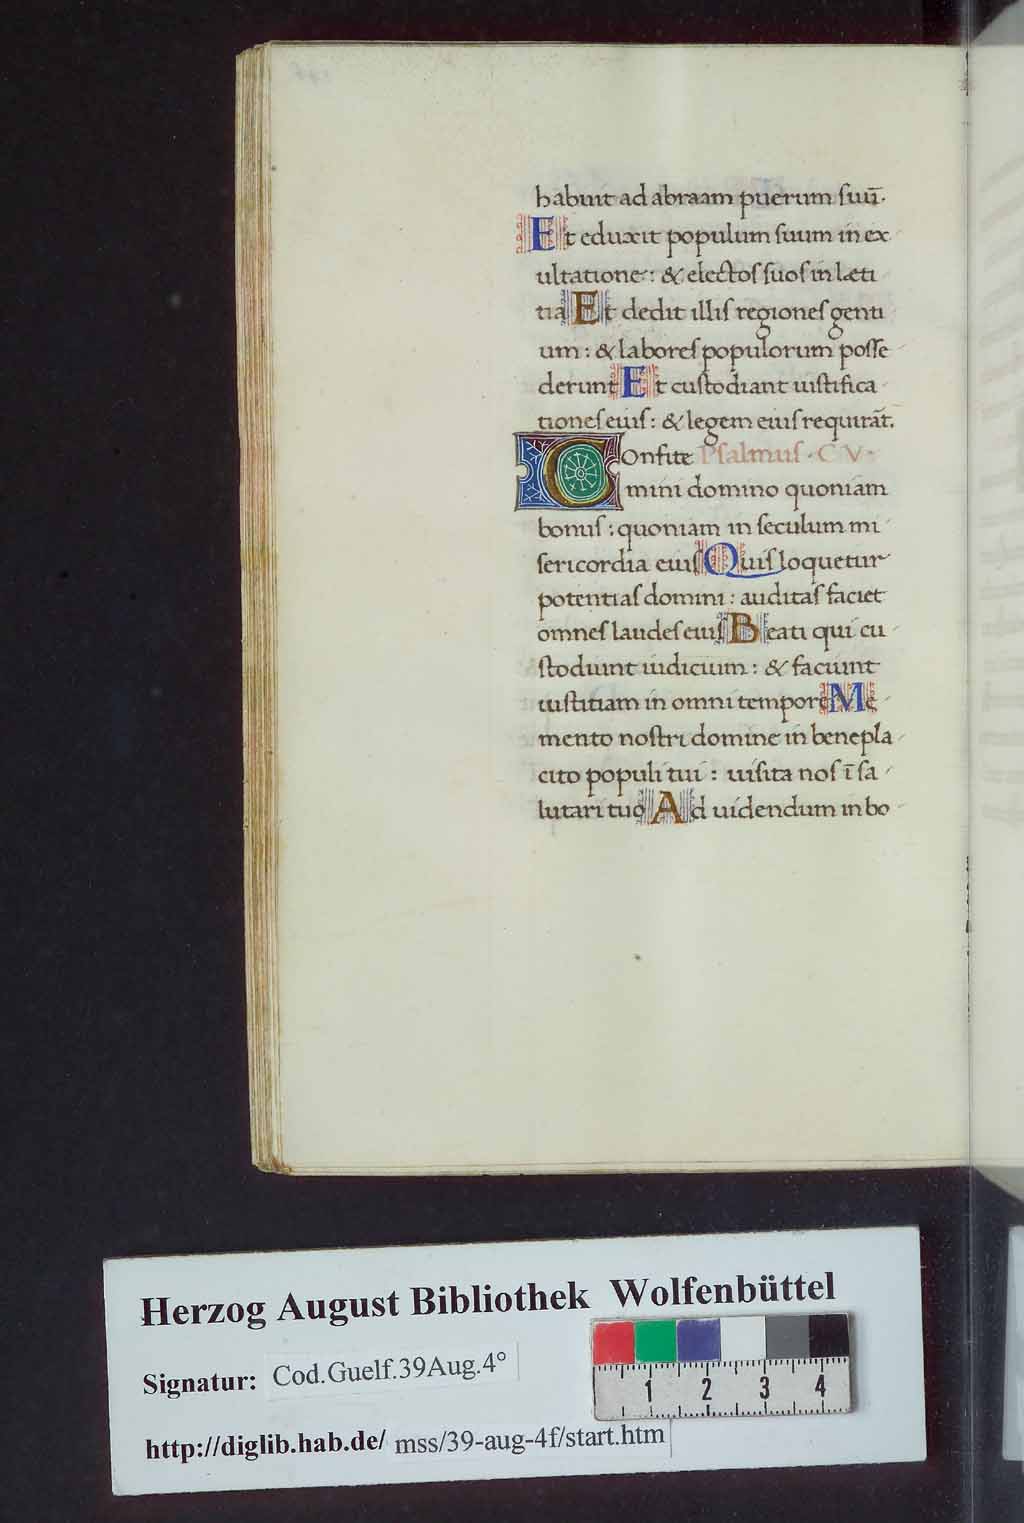 habuit ad abraam puerum suū.
Et eduxit populum suum in ex
ultatione: & electos suos in læti
tia Et dedit illis regiones genti
um: & labores populorum posse
derunt Et custodiant iustifica
tiones eius: & legem eius requirāt.
Confite Psalmus · CV ·
mini domino quoniam
bonus: quoniam in seculum mi
sericordia eius Quis loquetur
potentias domini: auditas faciet
omnes laudes eius Beati qui cu
stodiunt iudicium: & faciunt
iustitiam in omni tempore Me
mento nostri domine in benepla
cito populi tui: uisita nos ī sa
lutari tuo Ad uidendum in bo
Herzog August Bibliothek Wolfenbüttel
Signatur: Cod.Guelf.39Aug.4°
http://diglib.hab.de/ mss/39-aug-4f/start.htm
1 2 3 4